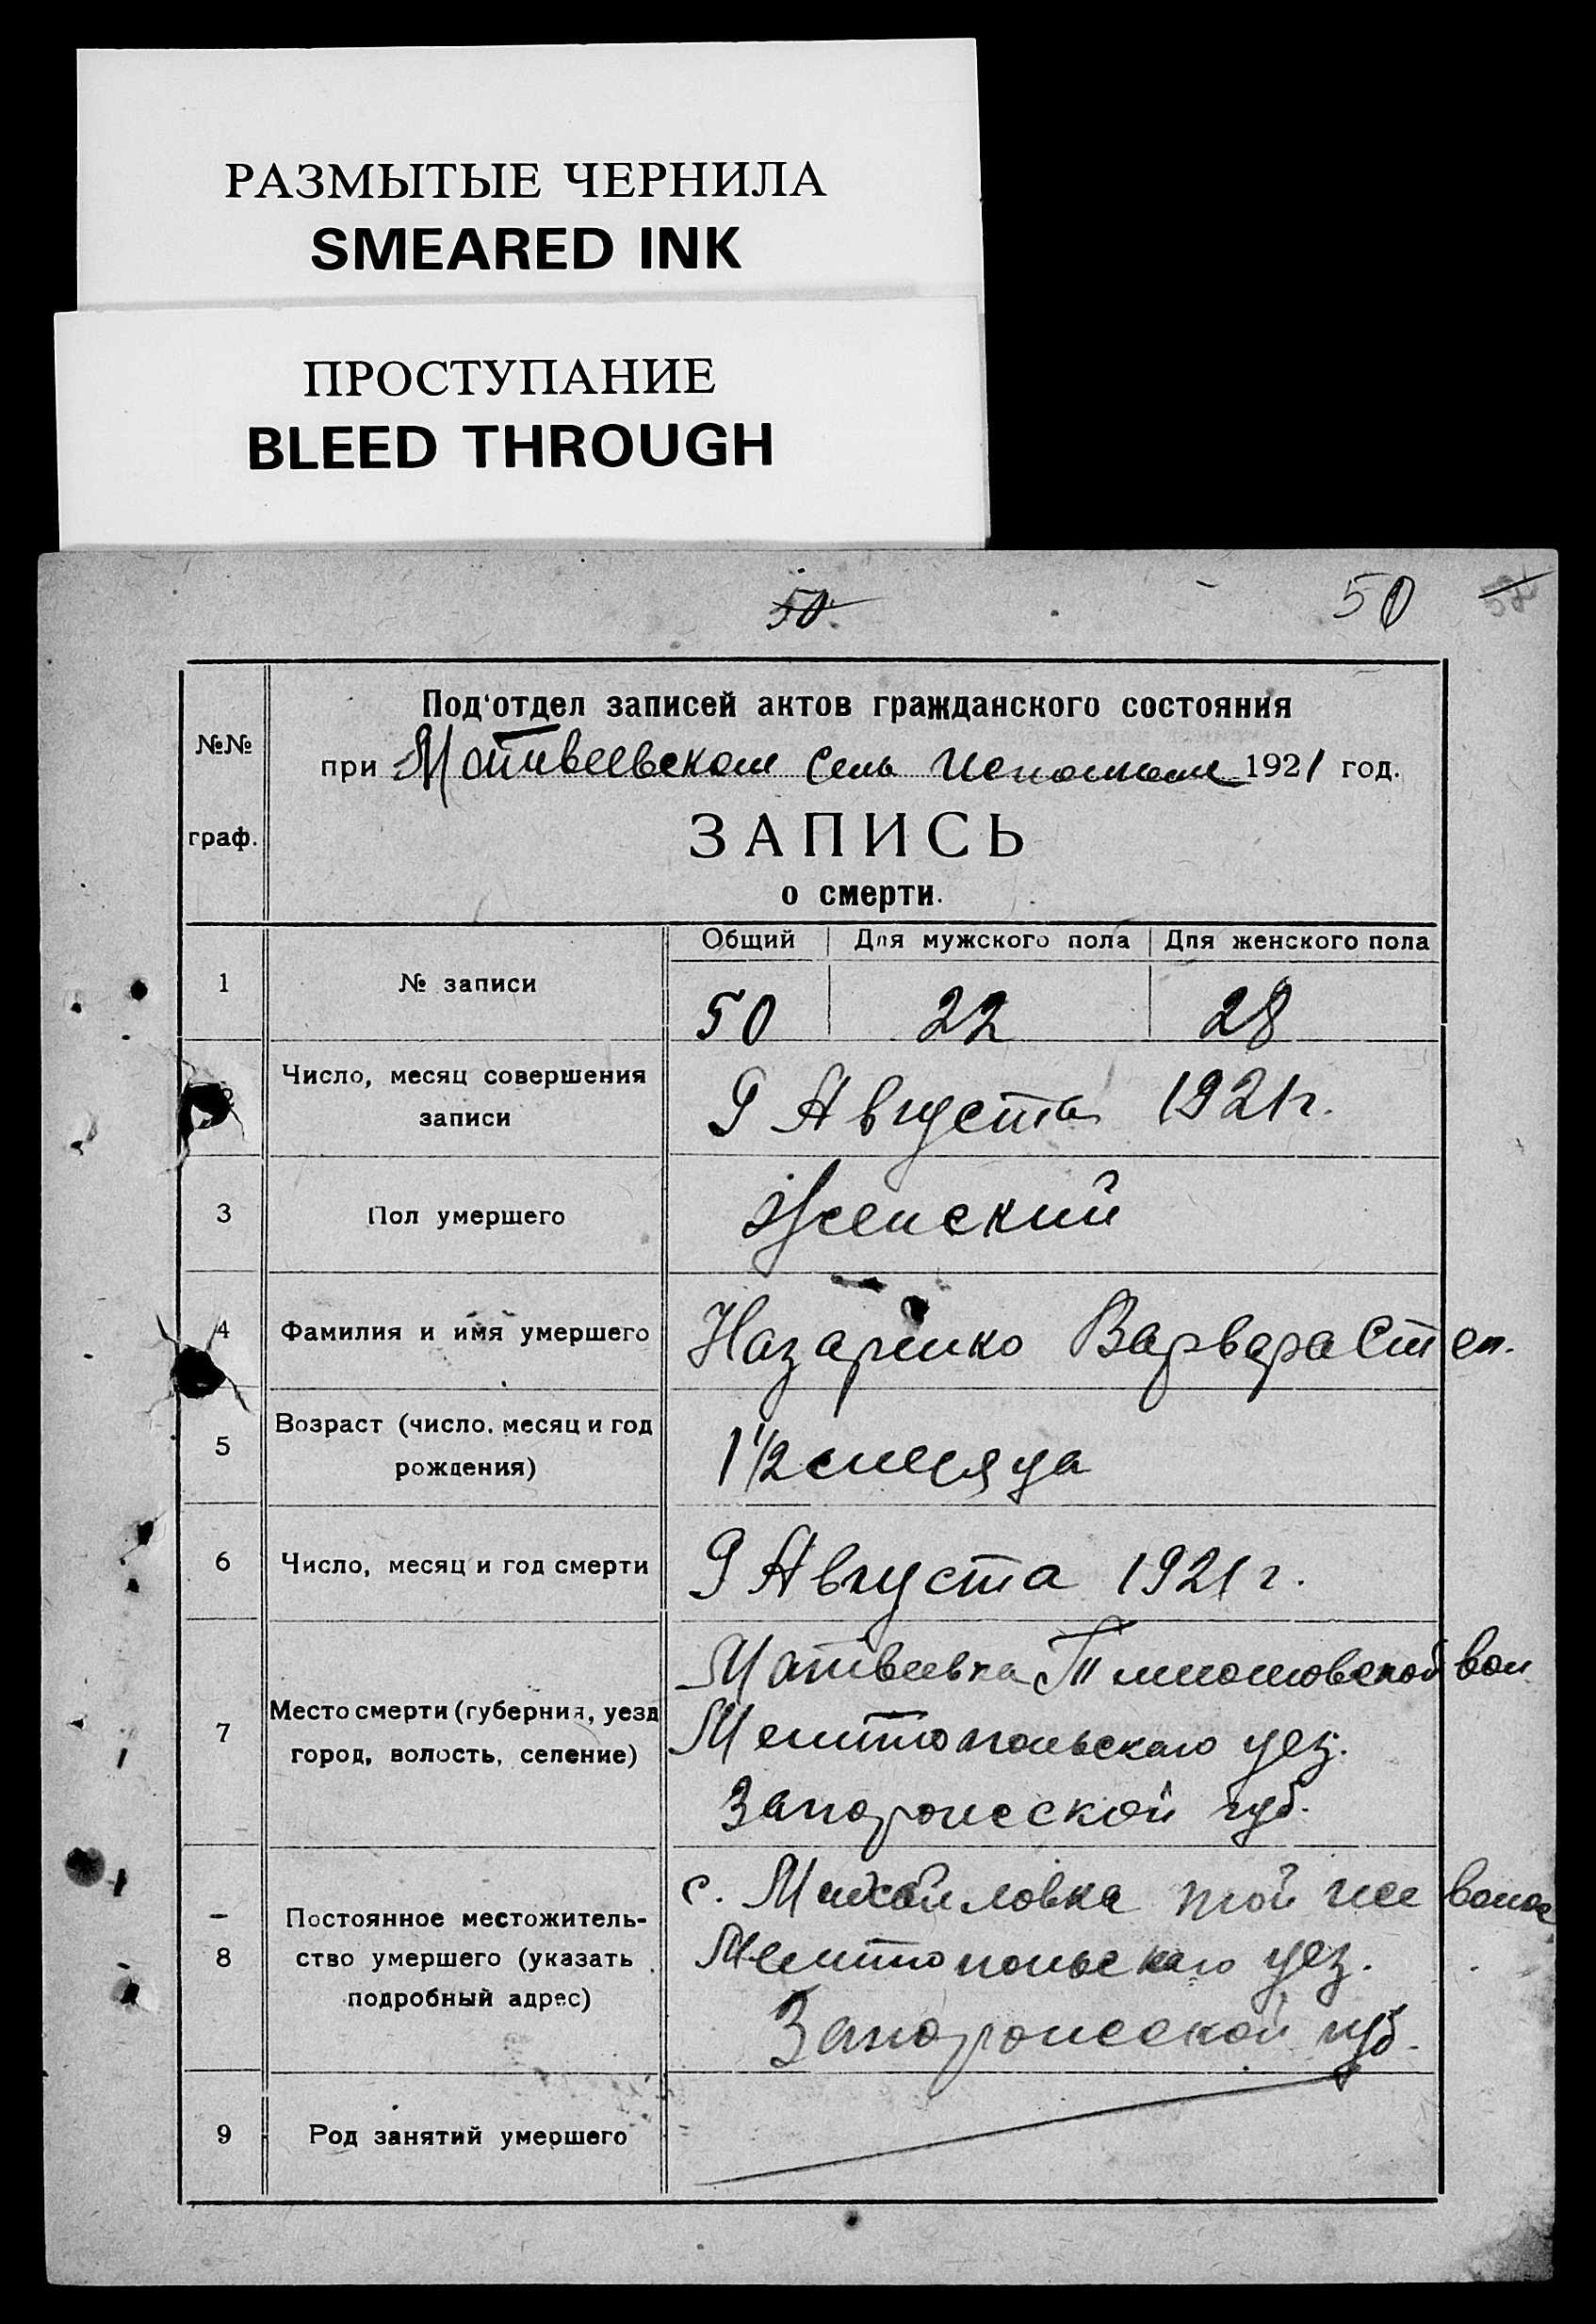 РАЗМЫТЫЕ ЧЕРНИЛА
SMEARED INK
ПРОСТУПАНИЕ
BLEED THROUGH
50. 50
Под'отдел записей актов гражданского состояния
№№
при Матвеевском Сель Исполкоме 1921 год.
граф.
ЗАПИСЬ
о смерти.
Общий Для мужского пола Для женского пола
1 № записи 50 22 28
2 Число, месяц совершения
записи
9 Августа 1921 г.
3 Пол умершего Женский
4 Фамилия и имя умершего Назаренко Варвара Степ.
5 Возраст (число, месяц и год
рождения)
1 1/2 месяца
6 Число, месяц и год смерти 9 Августа 1921 г.
7 Место смерти (губерния, уезд
город, волость, селение)
Матвеевка Тимошовской вол.
Мелитопольскаго уез.
Запорожской губ.
8 Постоянное местожитель-
ство умершего (указать
подробный адрес)
с. Михайловка той же
Мелитопольскаго уез.
Запорожской губ.
9 Род занятий умершего